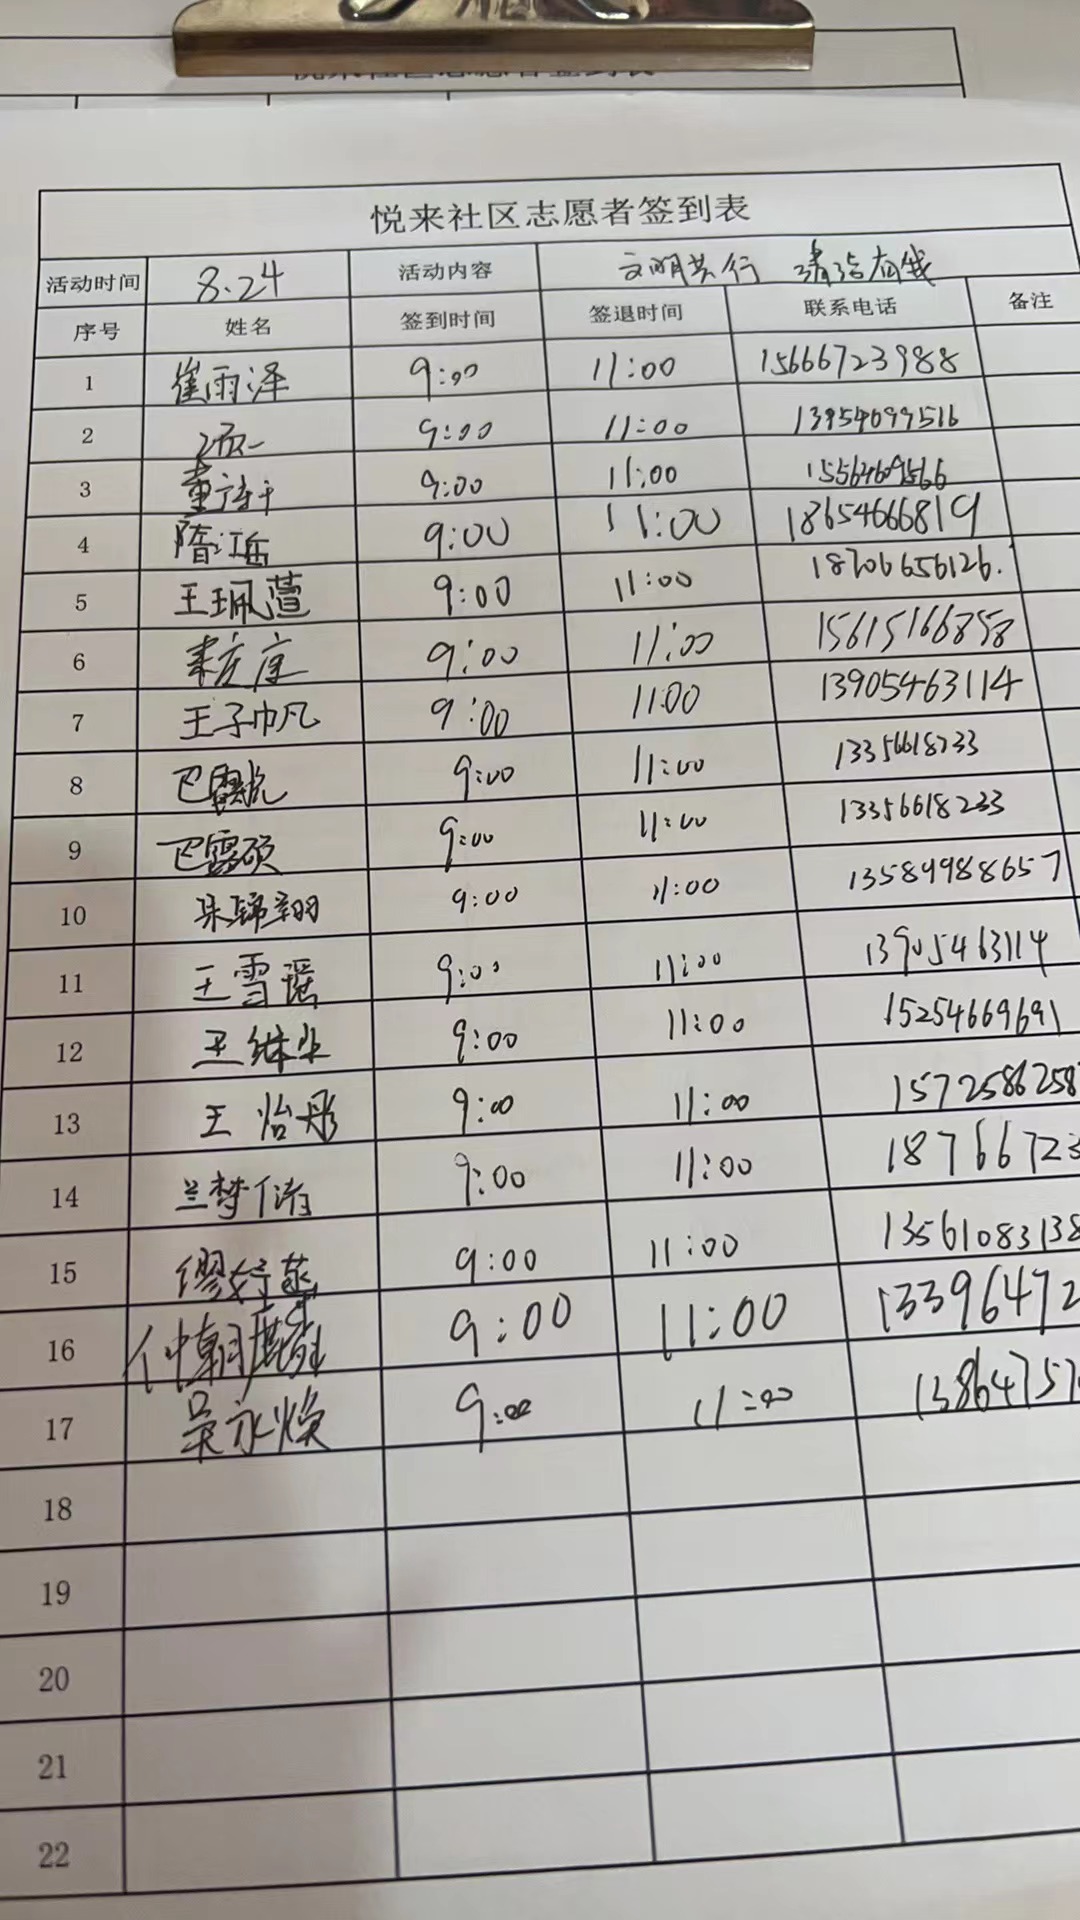 悦来社区志愿者签到表
活动时间 8.24 活动内容 文明共行 清洁有我
序号 姓名 签到时间 签退时间 联系电话 备注
1 崔雨泽 9:00 11:00 15666723988
2 9:00 11:00 13954099516
3 9:00 11:00 15564609566
4 隋江岳 9:00 11:00 18654666819
5 王珮萱 9:00 11:00 18706656126.
6 9:00 11:00 15615166858
7 王子帆 9:00 11:00 13905463114
8 巴露 9:00 11:00 13356618233
9 巴露硕 9:00 11:00 13356618233
10 锦翔 9:00 11:00 13589988657
11 王雪瑶 9:00 11:00 13905463114
12 王继业 9:00 11:00 15254669691
13 王怡彤 9:00 11:00 1572586258
14 兰梦倩 9:00 11:00 18766723
15 缪婷 9:00 11:00 13561083138
16 仲朝 9:00 11:00 13396472
17 吴永焕 9:00 11:00 13864757
18
19
20
21
22